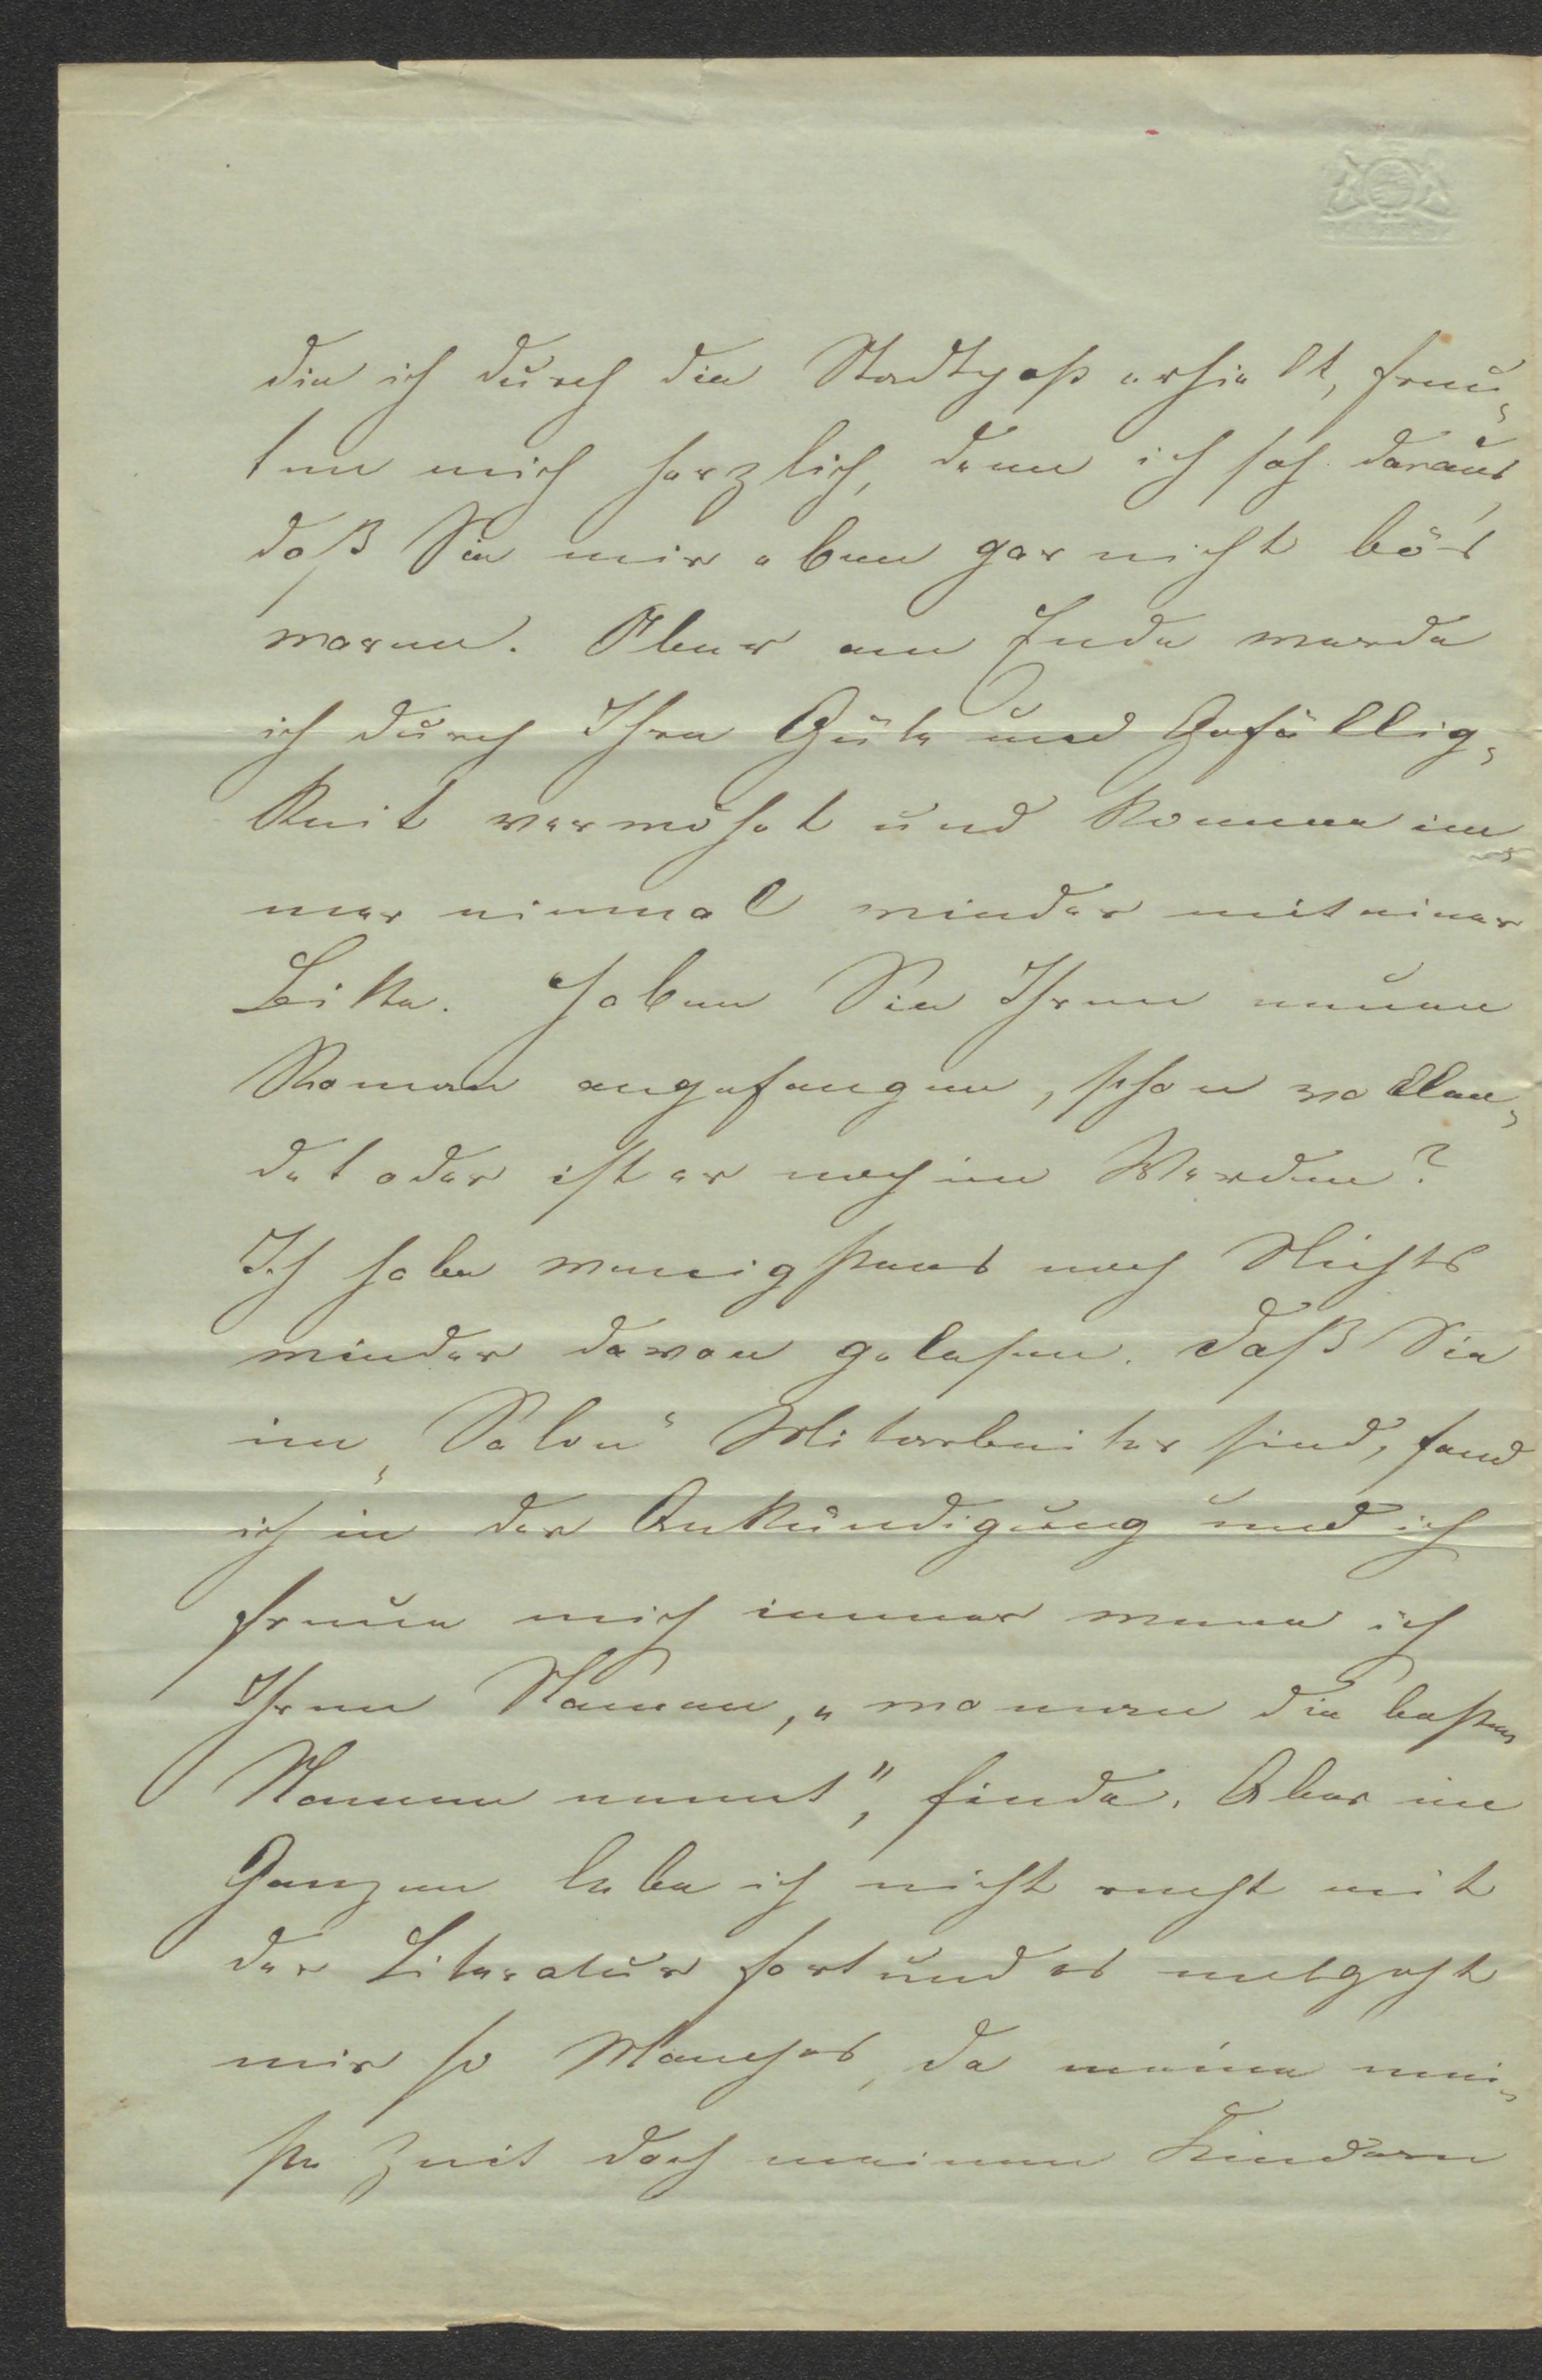 die ich durch die Stadtpost erhielt, freu„
ten mich herzlich, denn ich sah daraus,
daß Sie mir eben gar nicht bös
waren. Aber am Ende werde
ich durch Ihre Güte und Gefällig„
keit verwöhnt und komme im„
mer einmal wieder mit einer
Bitte. Haben Sie Ihren neuen
Roman angefangen, schon vollen„
det oder ist er noch im Werden?
Ich habe wenigstens noch Nichts
wieder davon gelesen. Daß Sie
im „Salon“ Mitarbeiter sind, fand
ich in der Ankündigung und ich
freue mich immer wenn ich
Ihren Namen, „wo man die besten
Namen nennt“, finde. Aber im
Ganzen lebe ich nicht recht mit
der Literatur fort und es entgeht
mir so Manches, da meine mei„
ste Zeit doch meinen Kindern